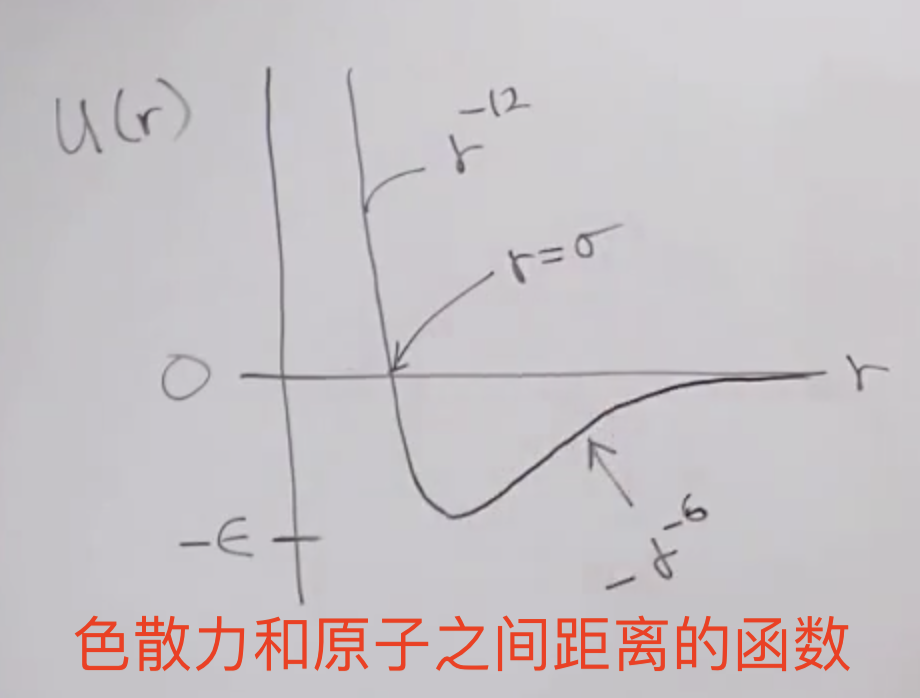 U(r)
r⁻¹²
r=σ
0
r
-ϵ
-r⁻⁶
色散力和原子之间距离的函数